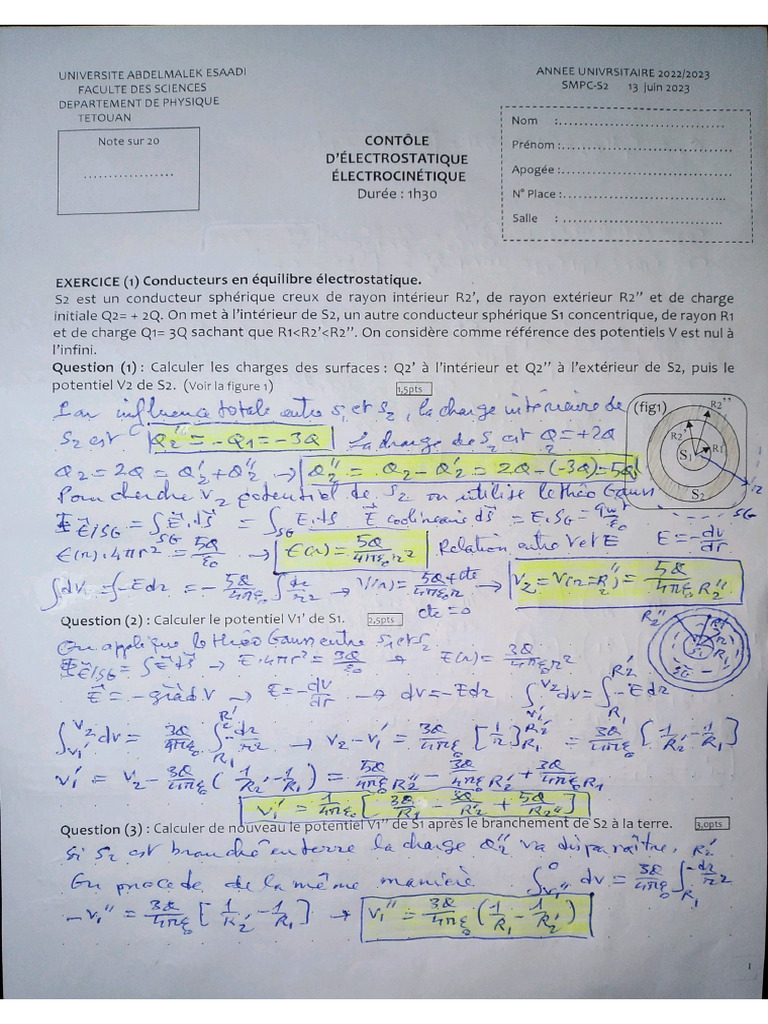 UNIVERSITE ABDELMALEK ESAADI
FACULTE DES SCIENCES
DEPARTEMENT DE PHYSIQUE
TETOUAN
ANNEE UNIVRSITAIRE 2022/2023
SMPC-S2 13 juin 2023
Note sur 20
..................
CONTÔLE
D'ÉLECTROSTATIQUE
ÉLECTROCINÉTIQUE
Durée : 1h30
Nom :
Prénom :
Apogée :
N° Place :
Salle :
EXERCICE (1) Conducteurs en équilibre électrostatique.
S2 est un conducteur sphérique creux de rayon intérieur R2', de rayon extérieur R2'' et de charge
initiale Q2= + 2Q. On met à l'intérieur de S2, un autre conducteur sphérique S1 concentrique, de rayon R1
et de charge Q1= 3Q sachant que R1<R2'<R2''. On considère comme référence des potentiels V est nul à
l'infini.
Question (1) : Calculer les charges des surfaces : Q2' à l'intérieur et Q2'' à l'extérieur de S2, puis le
potentiel V2 de S2. (Voir la figure 1) 1,5pts
Par influence totale entre S1 et S2, la charge intérieure de
S2 est = -Q1 = -3Q La charge de S2 est Q2 = +2Q
Q2 = 2Q = Q2' + Q2'' → Q2'' = Q2 - Q2' = 2Q - (-3Q) = 5Q
(fig1)
R2''
R2'
R1
S1
S2
SG
Pour cherche V2 potentiel de S2 on utilise le théo Gauss
Φ E/SG = ∫SG E.dS = ∫SG E.dS E colinéaire dS = E.SG = qint/ε0
E(r).4πr² = 5Q/ε0 → E(r) = 5Q/4πε0r² Relation entre V et E E = -dv/dr
∫dv = ∫-Edr = -5Q/4πε0 ∫dr/r² → V(r) = 5Q/4πε0r + cte → V2 = V(r=R2'') = 5Q/4πε0R2''
cte = 0
Question (2) : Calculer le potentiel V1' de S1. 2,5pts
On applique le théo Gauss entre S1 et S2
R2''
R2'
R1
S1
SG
Φ E/SG = ∫E dS → E.4πr² = 3Q/ε0 → E(r) = 3Q/4πε0r²
E = -grad V → E = -dv/dr → dv = -Edr ∫V1'V2 dv = ∫R1R2' -Edr
∫V1'V2 dv = 3Q/4πε0 ∫R1R2' -dr/r² → V2 - V1' = 3Q/4πε0 [1/r]R1R2' = 3Q/4πε0 [1/R2' - 1/R1]
V1' = V2 - 3Q/4πε0 (1/R2' - 1/R1) = 5Q/4πε0R2'' - 3Q/4πε0R2' + 3Q/4πε0R1
V1' = 1/4πε0 [3Q/R1 - 3Q/R2' + 5Q/R2'']
Question (3) : Calculer de nouveau le potentiel V1'' de S1 après le branchement de S2 à la terre. 3,0pts
Si S2 est branché en terre la charge Q2'' va disparaître,
On procede de la même manière ∫V1''0 dv = 3Q/4πε0 ∫R1R2' -dr/r²
-V1'' = 3Q/4πε0 [1/R2' - 1/R1] → V1'' = 3Q/4πε0 (1/R1 - 1/R2')
1